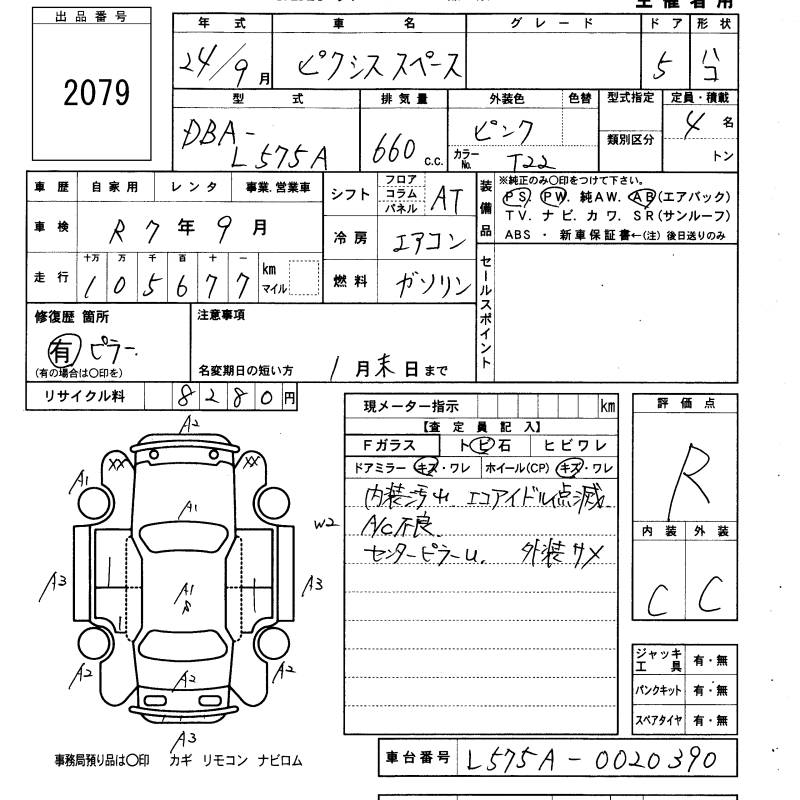 出品番号
2079
年式 車名 グレード ドア 形状
24/9月 ピクシススペース 5 ハコ
型式 排気量 外装色 色替 型式指定 定員・積載
DBA-L575A 660 c.c. ピンク 類別区分 4名
カラーNo. T22 トン
車歴 自家用 レンタ 事業.営業車
車検 R7年9月
走行 十万 万 千 百 十 一
105677 km マイル
シフト フロア コラム パネル AT
冷房 エアコン
燃料 ガソリン
装備品
※純正のみ〇印をつけて下さい。
PS. PW. 純AW. AB(エアバック)
TV. ナビ. カワ. SR(サンルーフ)
ABS ・ 新車保証書←(注) 後日送りのみ
セールスポイント
修復歴 箇所
有 ピラー.
(有の場合は〇印を)
注意事項
名変期日の短い方 1月末日まで
リサイクル料 8280円
現メーター指示 km
【査定員記入】
Fガラス トビ石 ヒビワレ
ドアミラー キズ・ワレ ホイール(CP) キズ・ワレ
内装汚れ エコアイドル点滅
A/C不良.
センターピラーU. 外装サメ
評価点
R
内装 外装
C C
ジャッキ工具 有・無
パンクキット 有・無
スペアタイヤ 有・無
A2
XX XX
A1 A2
A1
W2
A3 A1 A3
A2 A2 A2
A3
事務局預り品は〇印 カギ リモコン ナビロム
車台番号 L575A-0020390